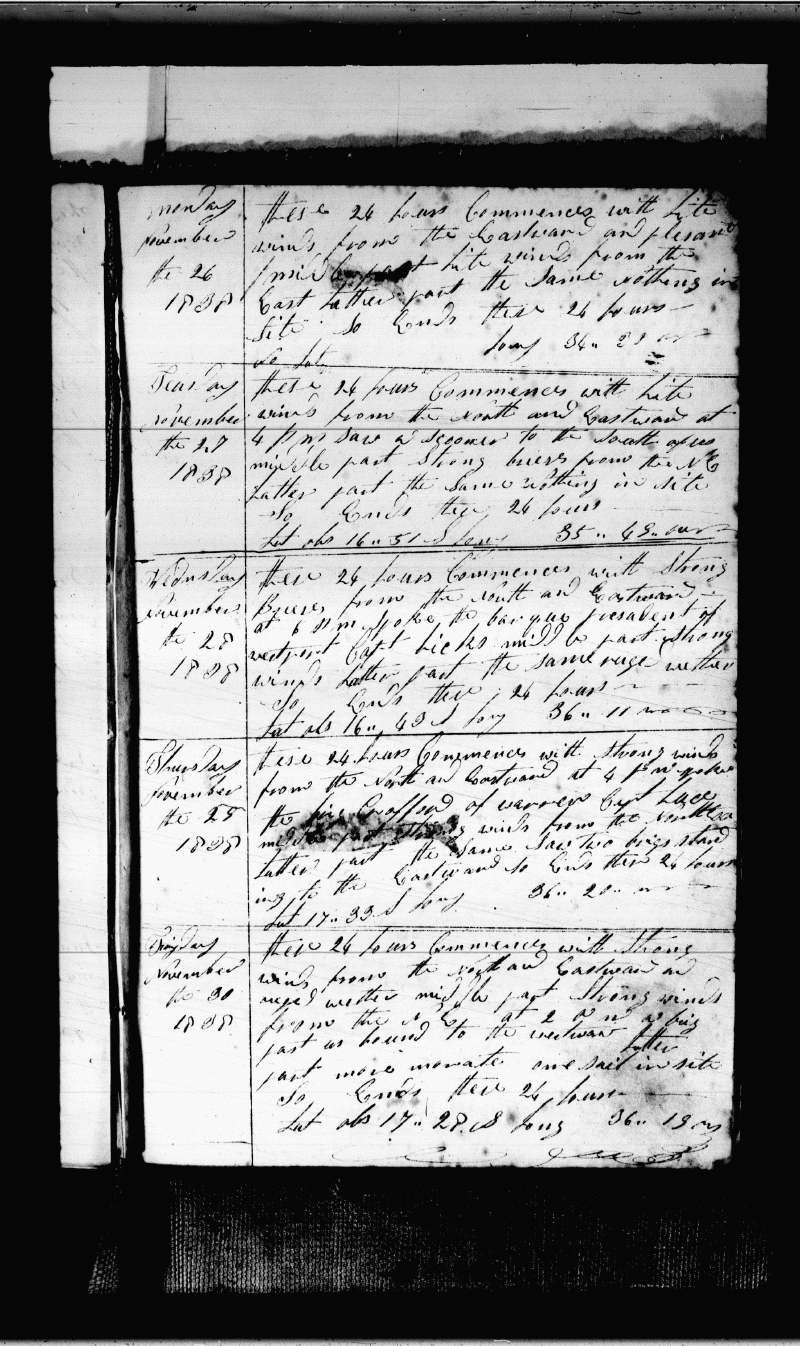 Monday
November
the 26
1838
these 24 hours Commences with lite
winds from the Eastward and plesant
lite winds from the
East latter part the same nothing in
site So Ends these 24 hours
long 34.. 2
So Lat
Teusday
November
the 27
1838
these 24 hours Commences with lite
winds from the North and Eastward at
4 P m saw a scooner to the South of us
middle part Strong brieses from the N E
latter part the Same nothing in site
So Ends these 24 hours
Lat obs 16.. 51 S long 35.. 43..
Wednsday
November
the 28
1838
these 24 hours Commences with Strong
Brieses from the North and Eastward
at 6 spoke the barque Presadent of
westport Capt hicks middle part Strong
winds latter part the same ruge wether
So Ends these 24 hours
Lat obs 16.. 43 S long 36.. 11
Thursday
November
the 29
1838
these 24 hours Commences with strong winds
from the North and Eastward at 4 P m spoke
the of warren Capt
middle part strong winds from the
latter part the same Saw two brigs stand
ing to the Eastward So Ends these 24 hours
Lat 17.. 33 S long 36.. 20..
Fryday
November
the 30
1838
these 24 hours Commences with Strong
winds from the North and Eastward and
ruged wether middle part Strong winds
from the N E at 2 a brig
past us bound to the westward latter
part more morate one sail in site
So Ends these 24 hours
Lat obs 17.. 28 S long 36.. 19